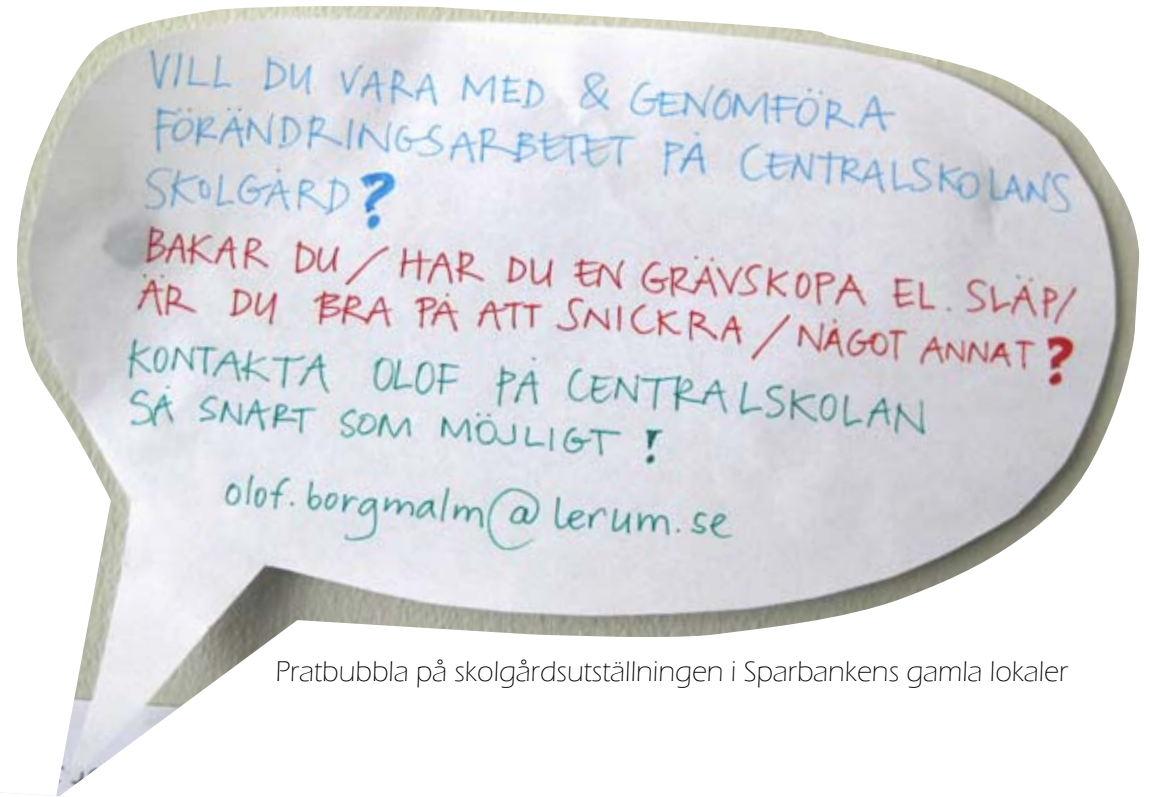 VILL DU VARA MED & GENOMFÖRA
FÖRÄNDRINGSARBETET PÅ CENTRALSKOLANS
SKOLGÅRD?
BAKAR DU / HAR DU EN GRÄVSKOPA EL. SLÄP/
ÄR DU BRA PÅ ATT SNICKRA / NÅGOT ANNAT?
KONTAKTA OLOF PÅ CENTRALSKOLAN
SÅ SNART SOM MÖJLIGT !
olof.borgmalm@lerum.se
Pratbubbla på skolgårdsutställningen i Sparbankens gamla lokaler